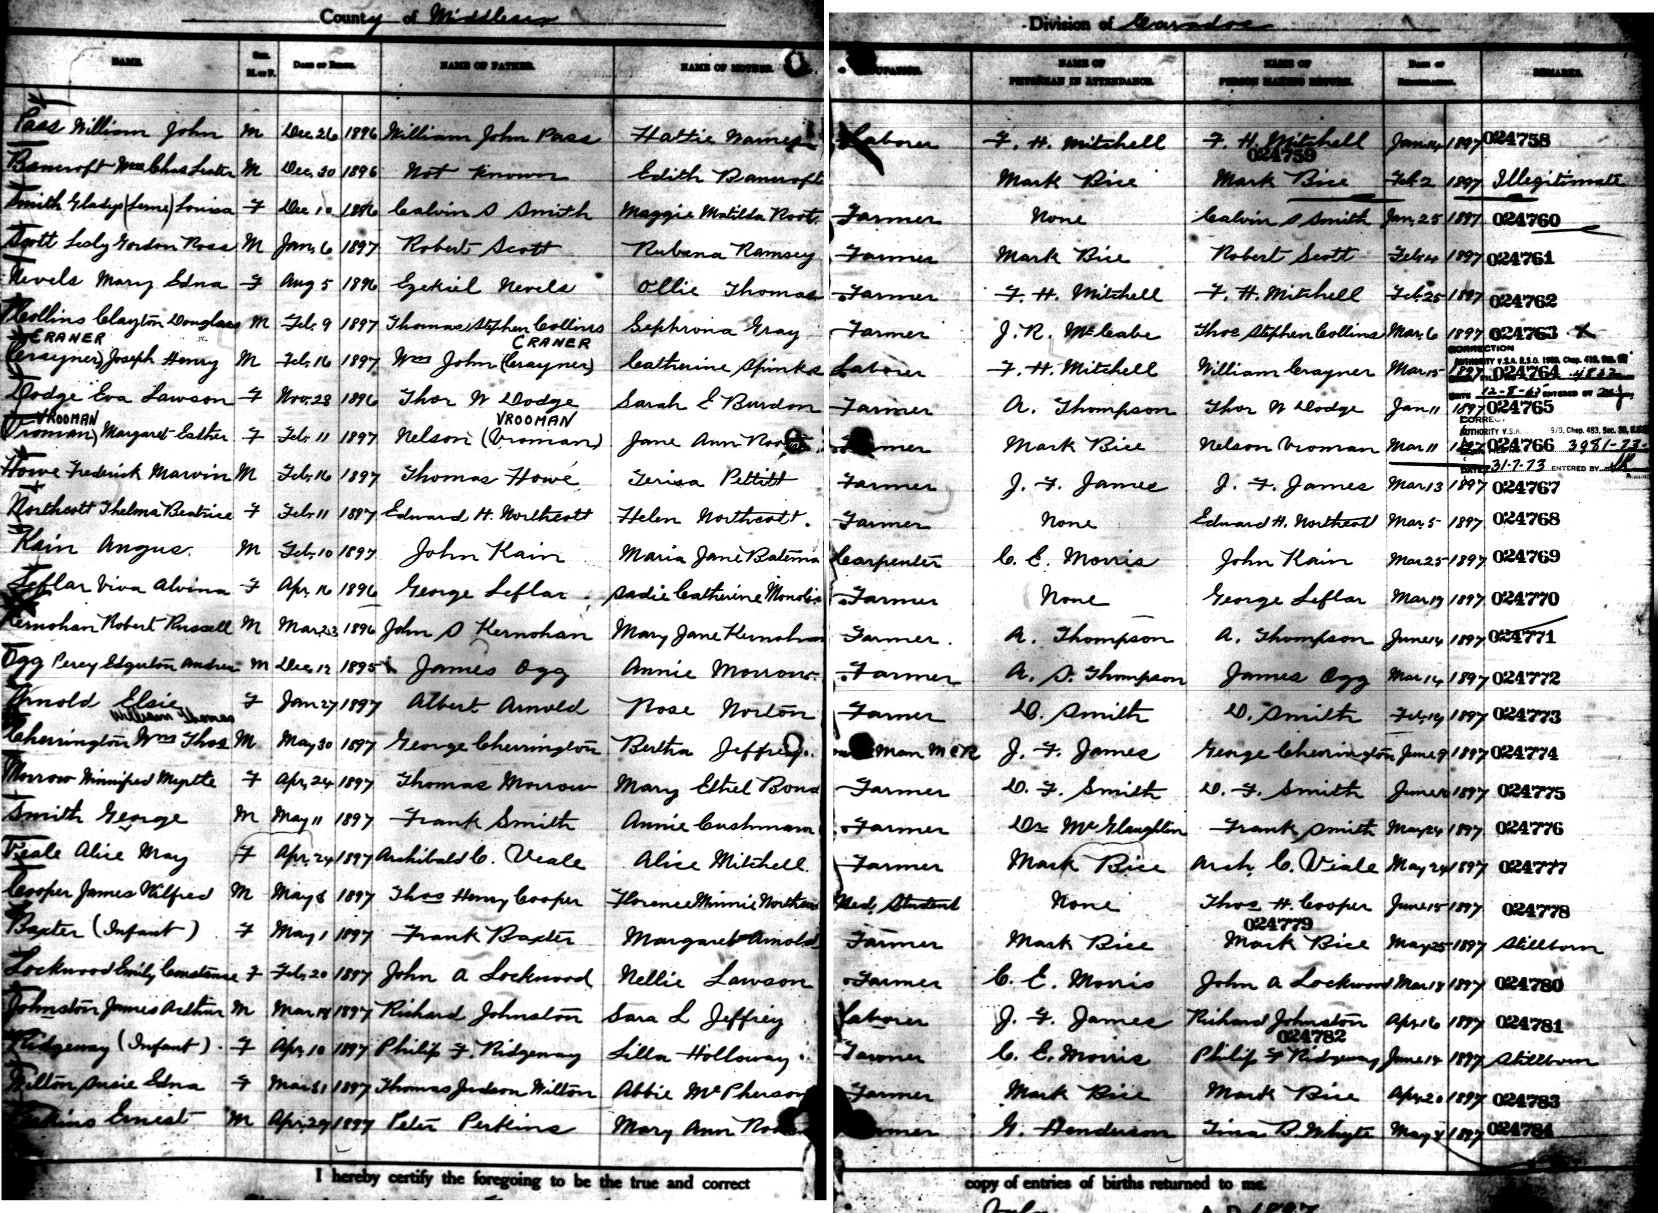 County of Middlesex
Division of Caradoc
NAME. Sex. M. or F. DATE OF BIRTH. NAME OF FATHER. NAME OF MOTHER. OCCUPATION. NAME OF PHYSICIAN IN ATTENDANCE. NAME OF PERSON MAKING RETURN. DATE OF REGISTRATION. REMARKS.
Pass William John M Dec 26 1896 William John Pass Hattie Laborer F. H. Mitchell F. H. Mitchell Jan 1897 024758
024759
Bancroft Wm Chas Lester M Dec 30 1896 Not Known Edith Bancroft Mark Bice Mark Bice Feb 2 1897 Illegitimate
Smith Gladys (Lerne) Louisa F Dec 10 1896 Calvin S Smith Maggie Matilda Root Farmer None Calvin S Smith Jan 25 1897 024760
Scott Lesly Gordon Ross M Jan 6 1897 Robert Scott Rubena Ramsey Farmer Mark Bice Robert Scott Feb 4 1897 024761
Nevels Mary Edna F Aug 5 1896 Ezekiel Nevels Ollie Thomas Farmer F. H. Mitchell F. H. Mitchell Feb 25 1897 024762
Collins Clayton Douglass M Feb 9 1897 Thomas Stephen Collins Sephrona Gray Farmer J. R. McCabe Thos Stephen Collins Mar 6 1897 024763 X
CRANER CRANER CORRECTION
(Crayner) Joseph Henry M Feb 16 1897 Wm John (Crayner) Catherine Spinks Laborer F. H. Mitchell William Crayner Mar 15 1897 024764
Dodge Eva Lawson F Nov 28 1896 Thos W Dodge Sarah E Burdon Farmer A. Thompson Thos W Dodge Jan 11 1897 024765
VROOMAN VROOMAN
(Vroman) Margaret Esther F Feb 11 1897 Nelson (Vroman) Jane Ann Farmer Mark Bice Nelson Vroman Mar 11 1897 024766 3981-73
DATE 31-7-73 ENTERED BY
Howe Frederick Marvin M Feb 16 1897 Thomas Howe Terisa Pettitt Farmer J. F. James J. F. James Mar 13 1897 024767
Northcott Thelma Beatrice F Feb 11 1897 Edward H. Northcott Helen Northcott. Farmer None Edward H. Northcott Mar 5 1897 024768
Kain Angus. M Feb 10 1897 John Kain Maria Jane Carpenter C. E. Morris John Kain Mar 25 1897 024769
Leflar Viva Alvina F Apr 16 1896 George Leflar Sadie Catherine Farmer None George Leflar Mar 19 1897 024770
Kernohan Robert Russell M Mar 23 1896 John S Kernohan Mary Jane Kernohan Farmer. A. Thompson A. Thompson June 14 1897 024771
Ogg Percy Edgerton Andrew M Dec 12 1895 James Ogg Annie Morrow. Farmer A. S. Thompson James Ogg Mar 14 1897 024772
Arnold Elsie F Jan 27 1897 Albert Arnold Rose Norton Farmer D. Smith D. Smith Feb 19 1897 024773
William Thomas
Cherrington Wm Thos M May 30 1897 George Cherrington Bertha Jeffrey. Man MCR J. F. James George Cherrington June 9 1897 024774
Morrow Winnifred Myrtle F Apr 24 1897 Thomas Morrow Mary Ethel Bond Farmer D. F. Smith D. F. Smith June 1897 024775
Smith George M May 11 1897 Frank Smith Annie Cushman Farmer Dr McGlaughlin Frank Smith May 24 1897 024776
Veale Alice May F Apr 24 1897 Archibald C. Veale Alice Mitchell. Farmer Mark Bice Arch. C. Veale May 24 1897 024777
Cooper James Wilfred M May 8 1897 Thos Henry Cooper Florence Minnie Med. Student None Thos H. Cooper June 15 1897 024778
024779
Baxter (Infant) F May 1 1897 Frank Baxter Margaret Arnold Farmer Mark Bice Mark Bice May 25 1897 Stillborn
Lockwood Emily Constance F Feb 20 1897 John A Lockwood Nellie Lawson Farmer C. E. Morris John A Lockwood Mar 18 1897 024780
Johnston James Arthur M Mar 18 1897 Richard Johnston Sara L Jeffrey Laborer J. F. James Richard Johnston Apr 16 1897 024781
024782
Ridgeway (Infant). F Apr 10 1897 Philip F. Ridgeway Lilla Holloway. Farmer C. E. Morris Philip F Ridgeway June 18 1897 Stillborn
Wilton Susie Edna F Mar 31 1897 Thomas Judson Wilton Abbie McPherson Farmer Mark Bice Mark Bice Apr 20 1897 024783
Perkins Ernest M Apr 29 1897 Peter Perkins Mary Ann Farmer G. Henderson Tina B. Whyte May 4 1897 024784
I hereby certify the foregoing to be the true and correct copy of entries of births returned to me.
A. D. 1897